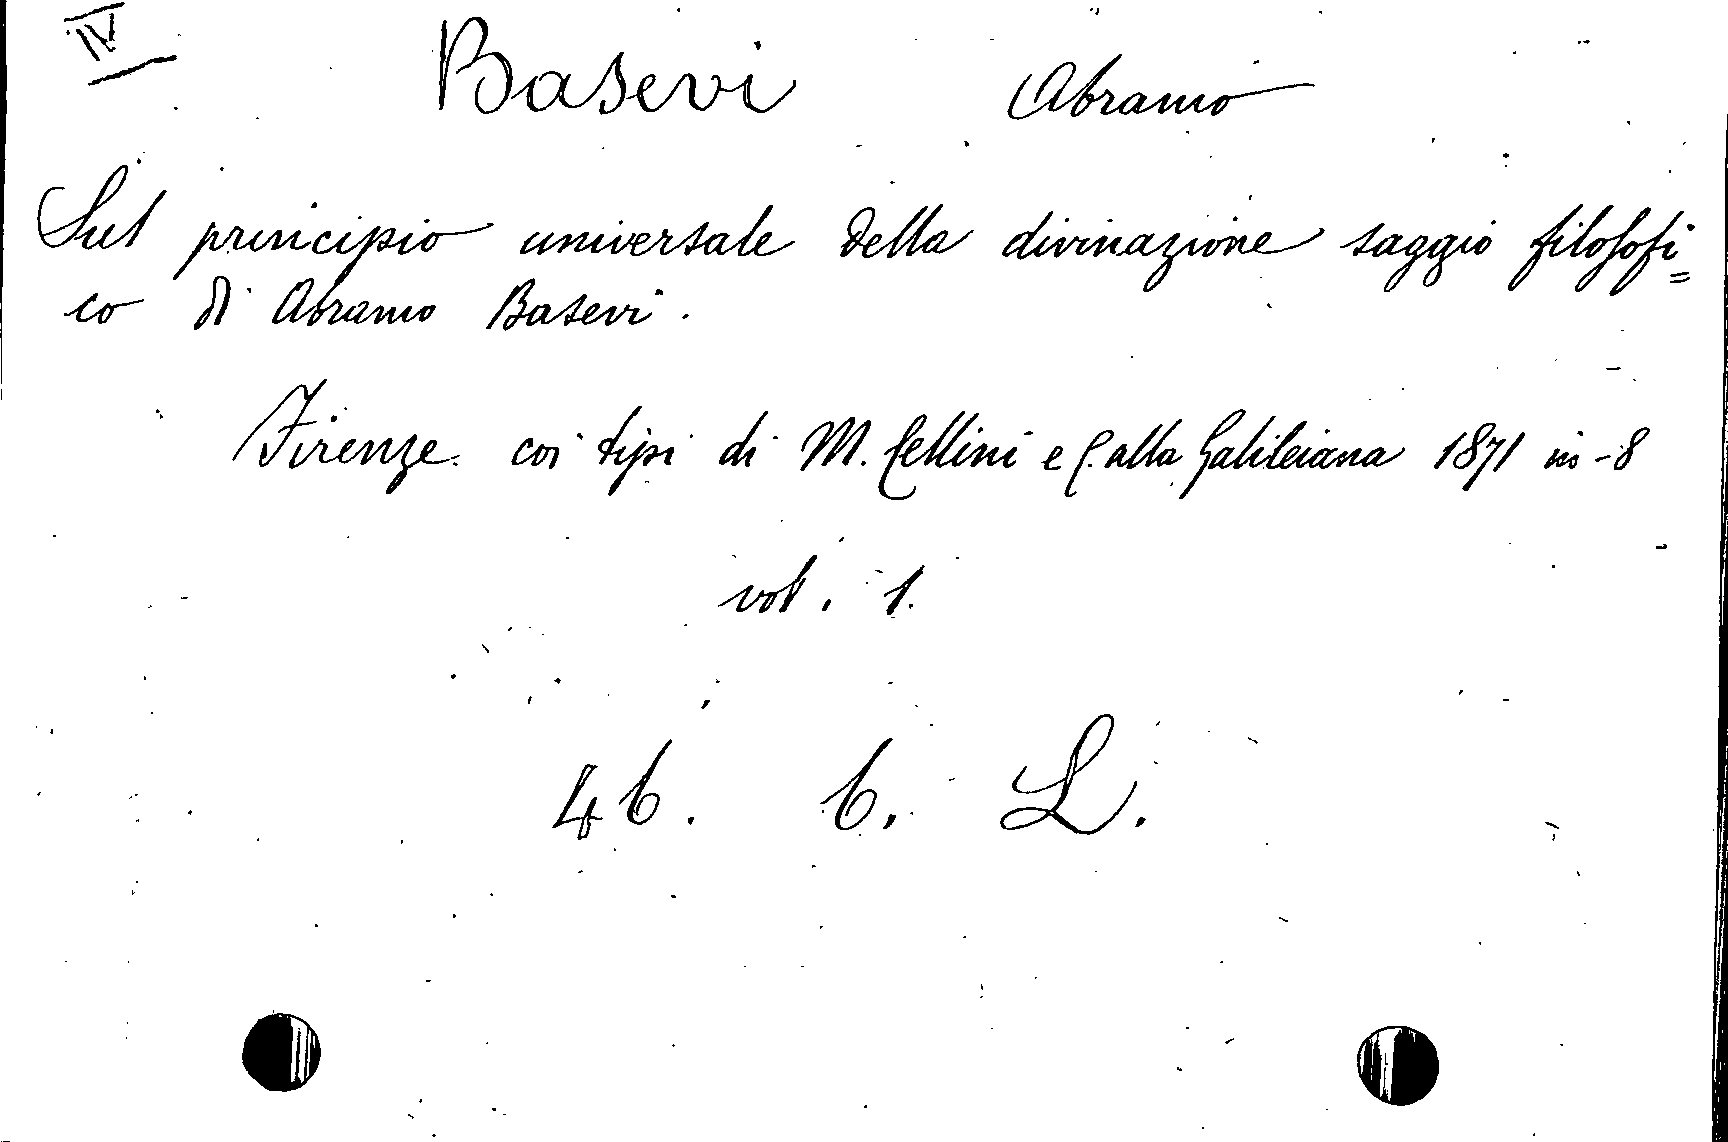 IV
Basevi Abramo
Sul principio universale della divinazione saggio filosofi=
co di Abramo Basevi.
Firenze. coi tipi di M. Cellini e C. alla Galileiana 1871 in-8
vol. 1.
46. 6. L.